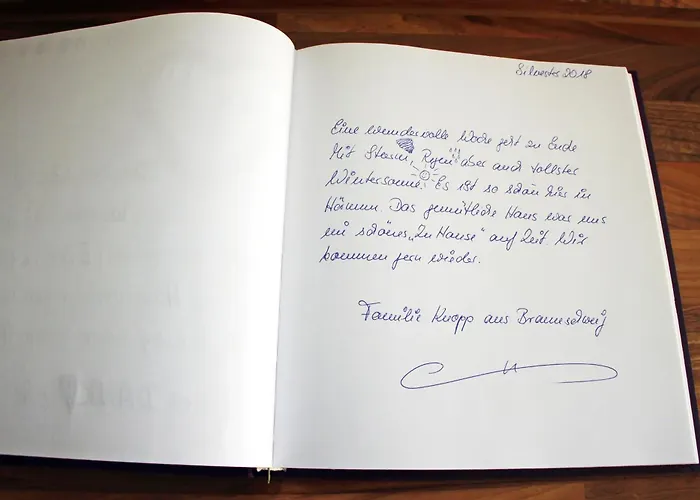 Silvester 2018
Eine wundervolle Woche geht zu Ende
Mit Sturm, Regen aber auch tollster
Wintersonne. Es ist so schön hier in
Hörnum. Das gemütliche Haus war uns
ein schönes „Zu Hause" auf Zeit. Wir
kommen gern wieder.
Familie Knopp aus Braunschweig